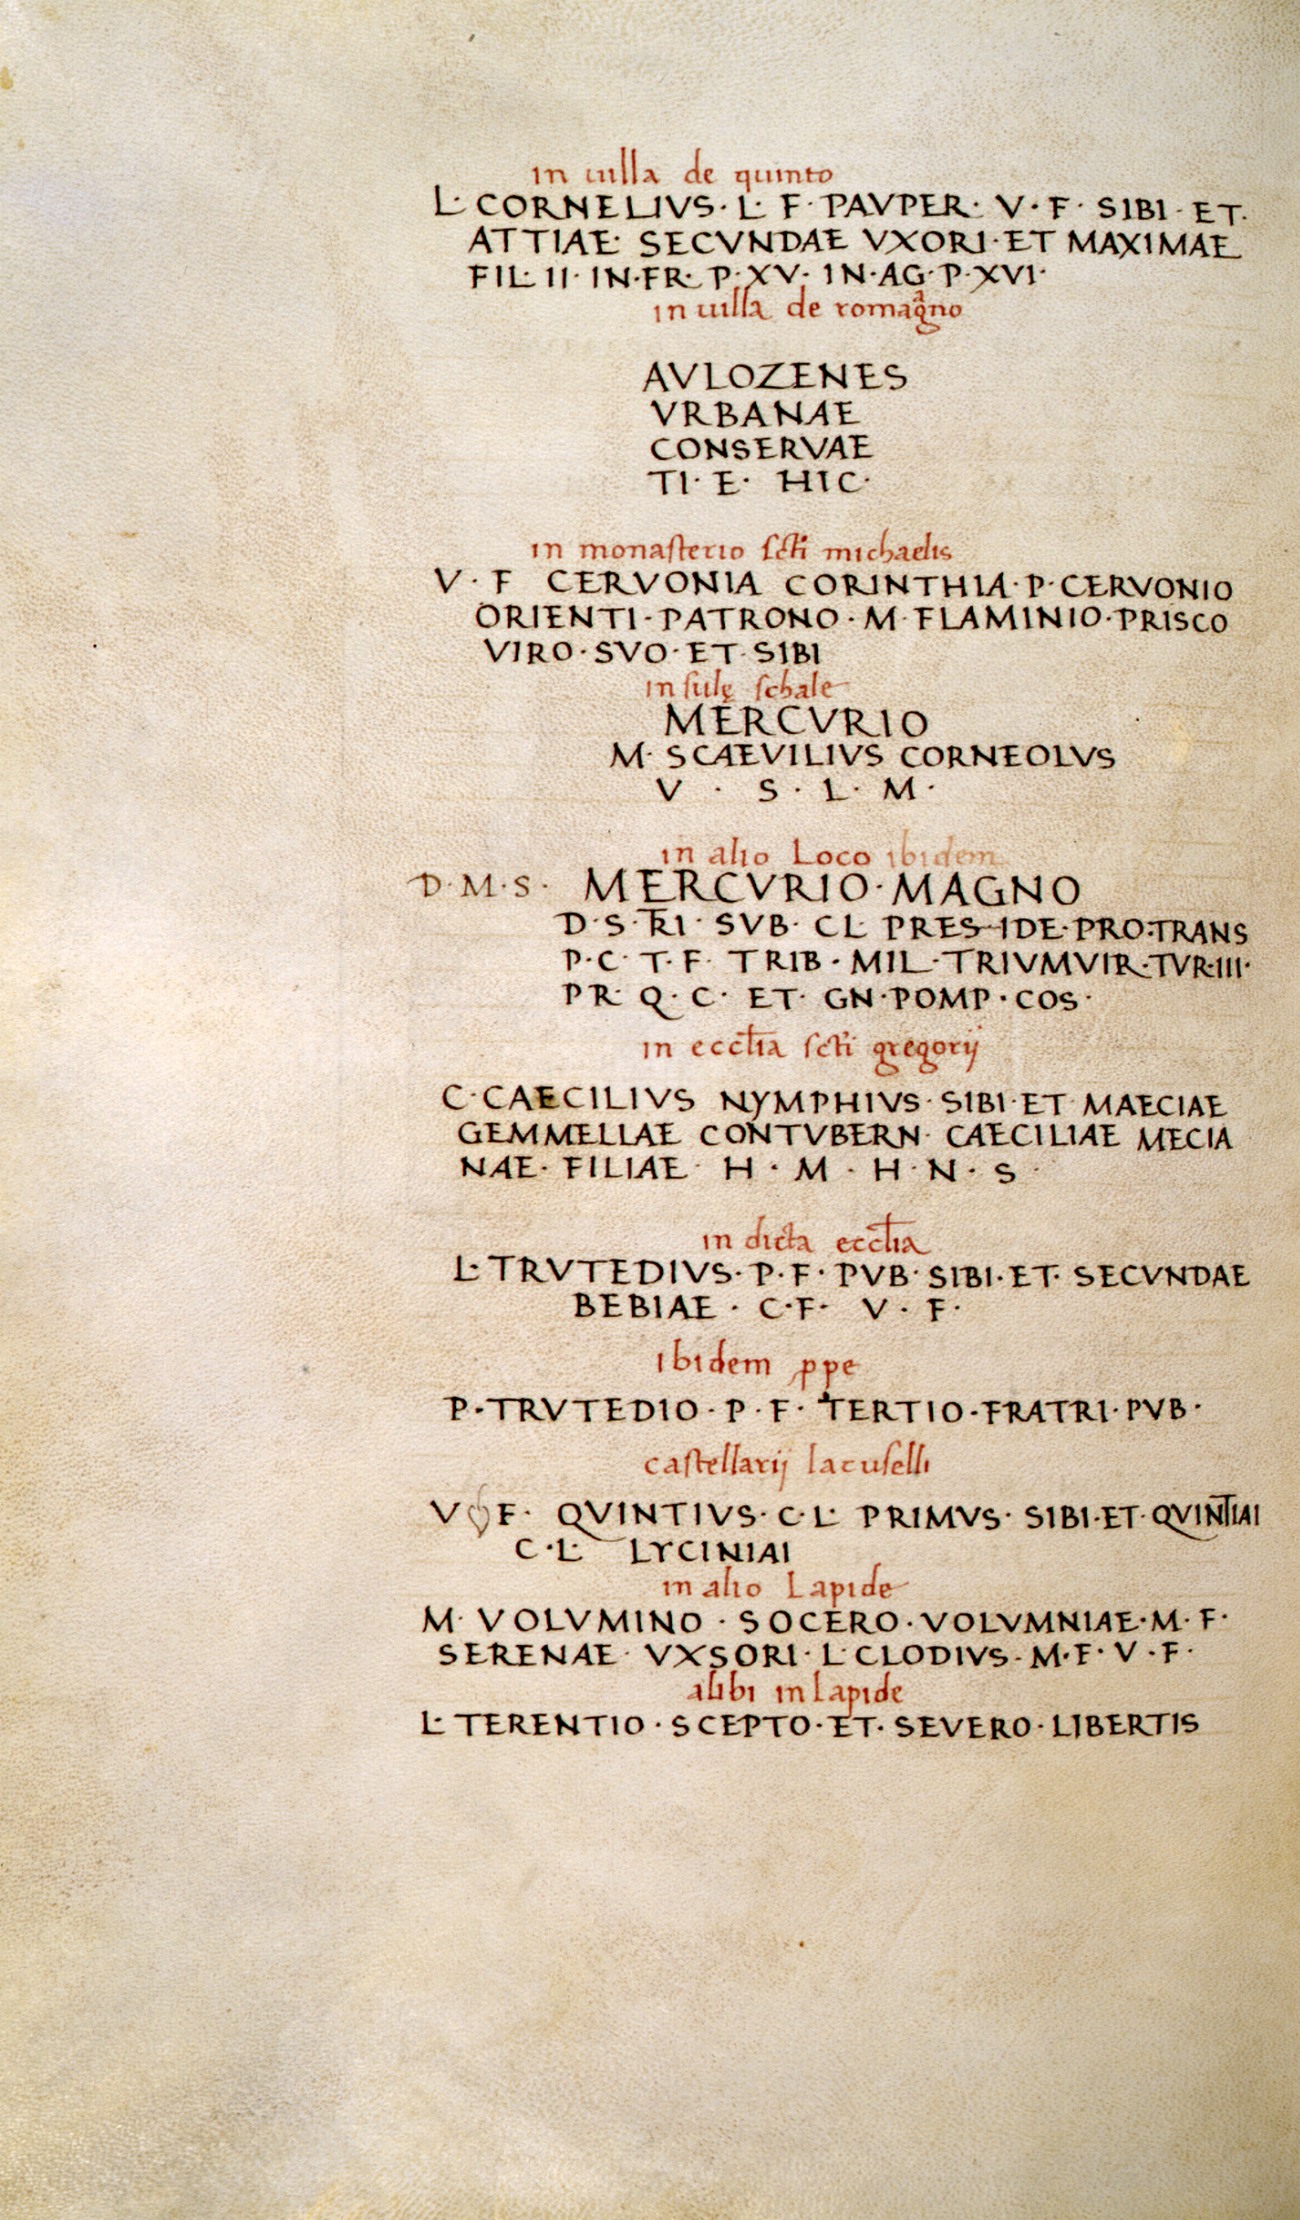 in uilla de quinto
L· CORNELIVS· L· F· PAVPER· V· F· SIBI· ET·
ATTIAE· SECVNDAE VXORI· ET MAXIMAE
FIL· II· IN·FR· P·XV· IN·AG·P·XVI·
in uilla de romagno
AVLOZENES
VRBANAE
CONSERVAE
TI· E· HIC·
in monasterio scti michaelis
V· F CERVONIA CORINTHIA·P·CERVONIO
ORIENTI·PATRONO·M·FLAMINIO·PRISCO
VIRO·SVO·ET·SIBI
insulę schale
MERCVRIO
M· SCAEVILIVS CORNEOLVS
V · S· L· M·
in alio Loco ibidem
D·M·S· MERCVRIO·MAGNO
D·S·TRI· SVB· CL· PRES IDE·PRO:TRANS
P·C· T·F· TRIB·MIL·TRIVMVIR·TVR·III·
PR· Q·C· ET· GN·POMP·COS·
in ecclia scti gregorij
C·CAECILIVS NYMPHIVS·SIBI·ET MAECIAE
GEMMELLAE CONTVBERN· CAECILIAE MECIA
NAE· FILIAE· H·M·H·N·S·
in dicta ecclia
L·TRVTEDIVS·P·F·PVB·SIBI·ET·SECVNDAE
BEBIAE· C·F· V·F·
ibidem ppe
P·TRVTEDIO·P·F·TERTIO·FRATRI·PVB·
castellarij lacuselli
V F· QVINTIVS·C·L· PRIMVS· SIBI·ET·QVINTIAI
C·L· LYCINIAI
in alio Lapide
M· VOLVMINO· SOCERO·VOLVMNIAE·M·F·
SERENAE· VXSORI·L·CLODIVS·M·F·V·F·
alibi in Lapide
L· TERENTIO·SCEPTO·ET·SEVERO·LIBERTIS